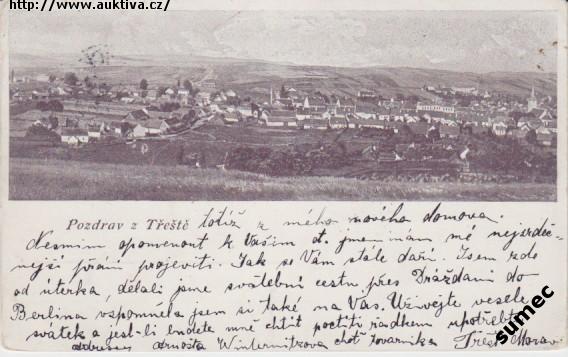 http://www.auktiva.cz/
Pozdrav z Třeště totiž z mého nového domova.
Nesmím opomenout k Vašim d. jmeninám mé nejsrdeč-
nější přání projeviti. Jak se Vám stále daří. Jsem zde
od úterka, dělali jsme svatební cestu přes Drážďani do
Berlina vzpomněla jsem si také na Vás. Užívejte vesele
svátek a jest-li budete mně chtít poctíti řádkem upotřebte
adresu Arnošta Winternitzova choť továrníka Třešť Morav
sumec